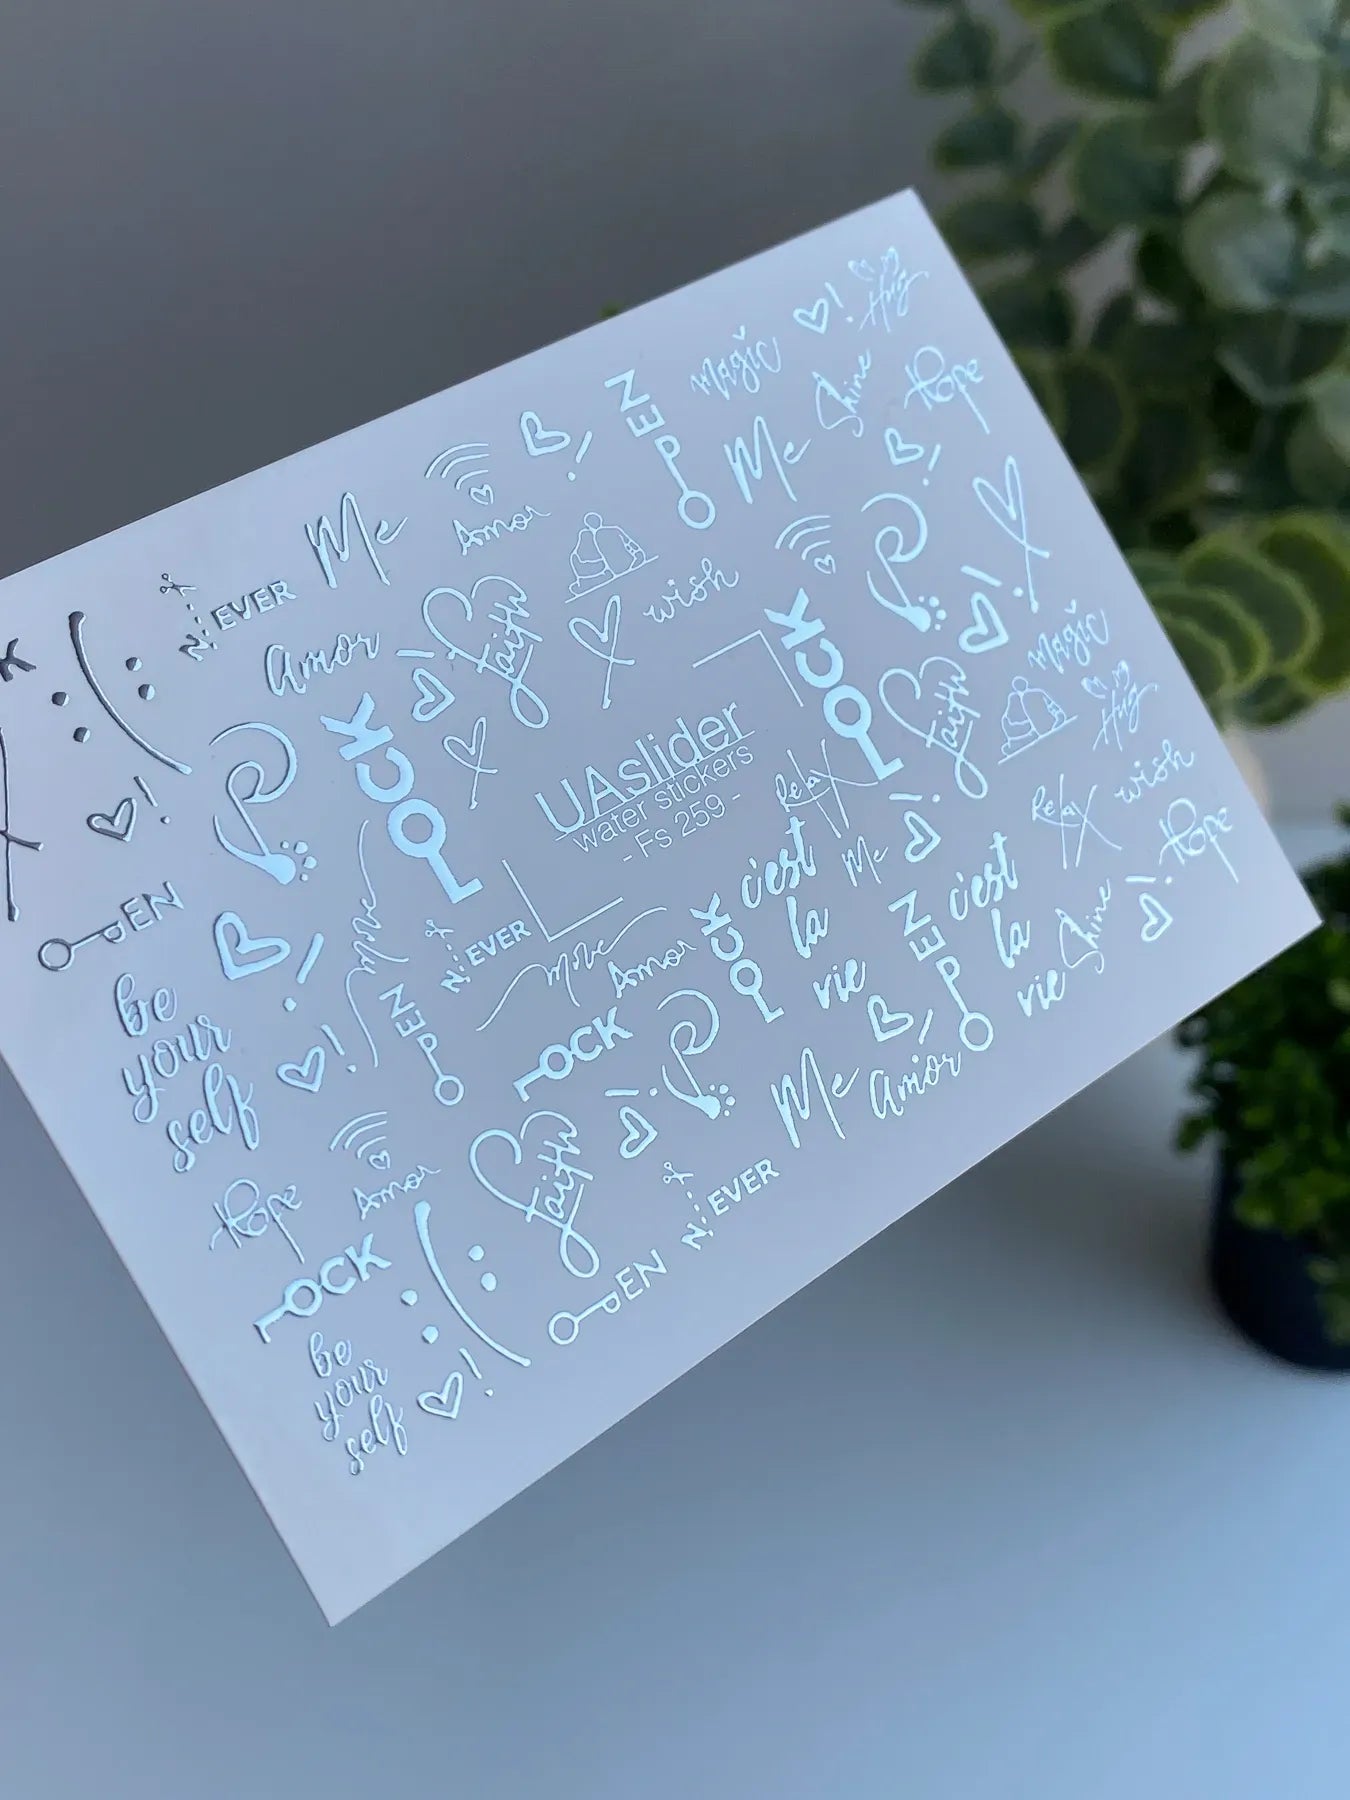 Hug
Magic
Shine
Hope
OPEN
Me
Me
Amor
NEVER
wish
Amor
Faith
LOCK
LOCK
K
Magic
Hug
UAslider
water stickers
- Fs 259 -
Faith
Relax
wish
Relax
Hope
c'est
la
vie
Me
c'est
la
vie
Shine
OPEN
OPEN
move
NEVER
move
Amor
LOCK
OPEN
be
your
self
OPEN
LOCK
Me
Amor
Hope
Amor
Faith
NEVER
LOCK
OPEN
be
your
self